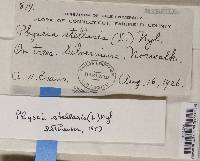 819.
HERBARIUM OF YALE UNIVERSITY
FLORA OF CONNECTICUT, FAIRFIELD COUNTY
Physcia stellaris (L.) Nyl.
On trees. Silvermine, Norwalk.
A. W. Evans, Aug. 16, 1926.
Physcia stellaris (L.) Nyl.